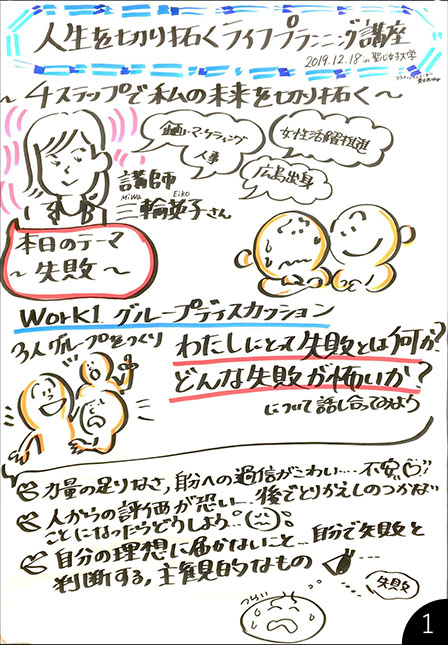 人生を切り拓くライフプランニング講座
2019.12.18 in 聖心女子大学
～4ステップで私の未来を切り拓く～
企画・マーケティング
人事
女性活躍推進
広島出身
講師
Miwa Eiko
三輪英子さん
本日のテーマ
～失敗～
Work1. グループディスカッション
3人グループをつくり
わたしにとって失敗とは何か?
どんな失敗が怖いか?
について話し合ってみよう
力量の足りなさ,自分への過信がこわい…不安
人からの評価が恐い…後でとりかえしのつかない
ことになったらどうしよう…
自分の理想に届かないこと…自分で失敗と
判断する,主観的なもの
失敗
つらい
1